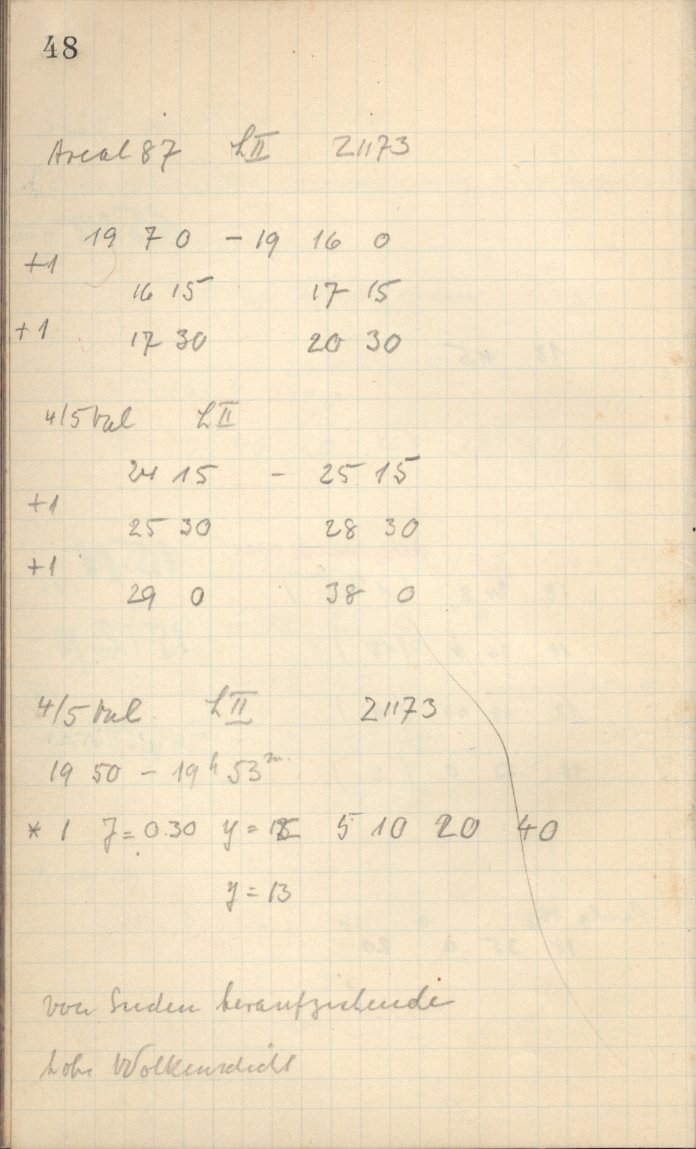 48
Areal 87 L II 21173
19 7 0 – 19 16 0
+1
16 15 17 15
+1 17 30 20 30
4/5 Vul L II
24 15 – 25 15
+1
25 30 28 30
+1
29 0 38 0
4/5 Vul L II 21173
19 50 – 19h 53m
* 1 J = 0.30 y = 5 10 20 40
y = 13
von Süden heraufziehende
hohe Wolkenschicht